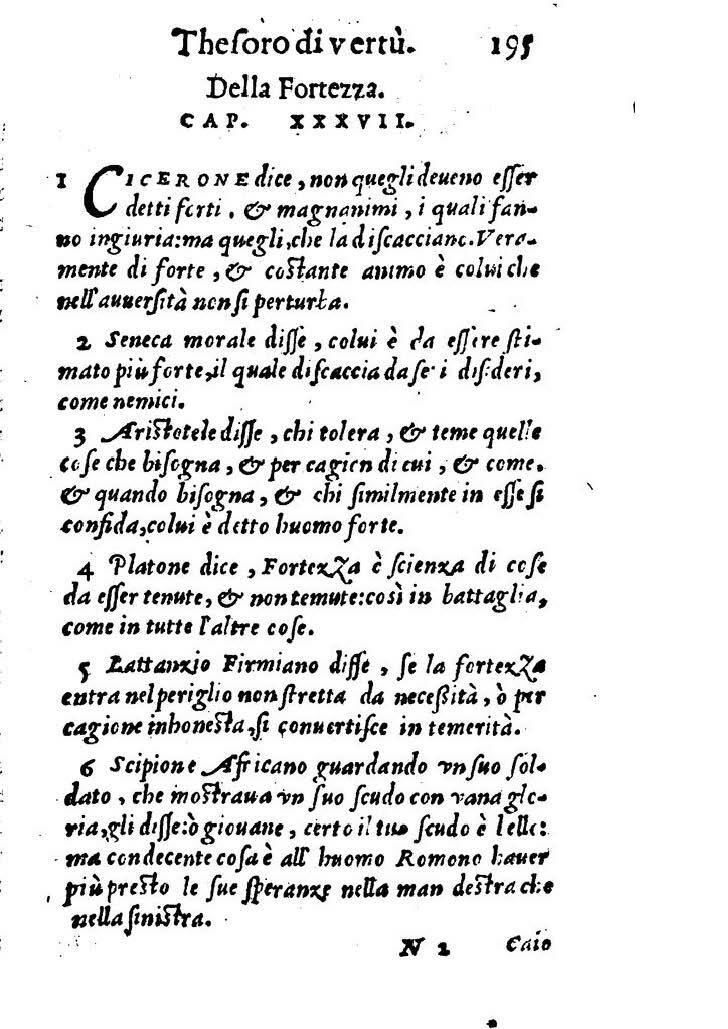 Thesoro di vertù. 195
Della Fortezza.
CAP. XXXVII.
1 CICERONE dice, non quegli deueno esser
detti forti, & magnanimi, i quali fan-
no ingiuria: ma quegli, che la discacciano. Vera-
mente di forte, & costante animo è colui che
nell'auuersità non si perturba.
2 Seneca morale disse, colui è da essere sti-
mato più forte, il quale discaccia da se i disideri,
come nemici.
3 Aristotele disse, chi tolera, & teme quelle
cose che bisogna, & per cagion di cui, & come,
& quando bisogna, & chi similmente in esse si
confida, colui è detto huomo forte.
4 Platone dice, Fortezza è scienza di cose
da esser tenute, & non temute: così in battaglia,
come in tutte l'altre cose.
5 Lattanzio Firmiano disse, se la fortezza
entra nel periglio non stretta da necessità, ò per
cagione inhonesta, si conuertisce in temerità.
6 Scipione Africano guardando vn suo sol-
dato, che mostraua vn suo scudo con vana glo-
ria, gli disse: ò giouane, certo il tuo scudo è bello:
ma condecente cosa è all'huomo Romono hauer
più presto le sue speranze nella man destra che
nella sinistra.
N 2 Caio